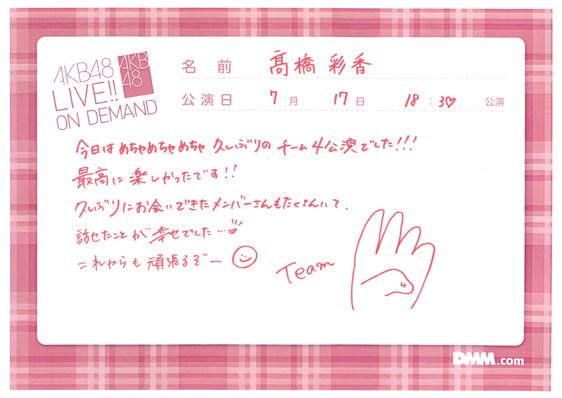 AKB48
LIVE!!
ON DEMAND
AKB
48
名 前 髙橋 彩香
公演日 7月 17日 18:30 公演
今日は めちゃめちゃめちゃ 久しぶりの チーム4公演でした!!!
最高に 楽しかったです!!
久しぶりにお会いできたメンバーさんもたくさんいて、
話せたことが 幸せでした…
これからも 頑張るぞー
Team
4
DMM.com